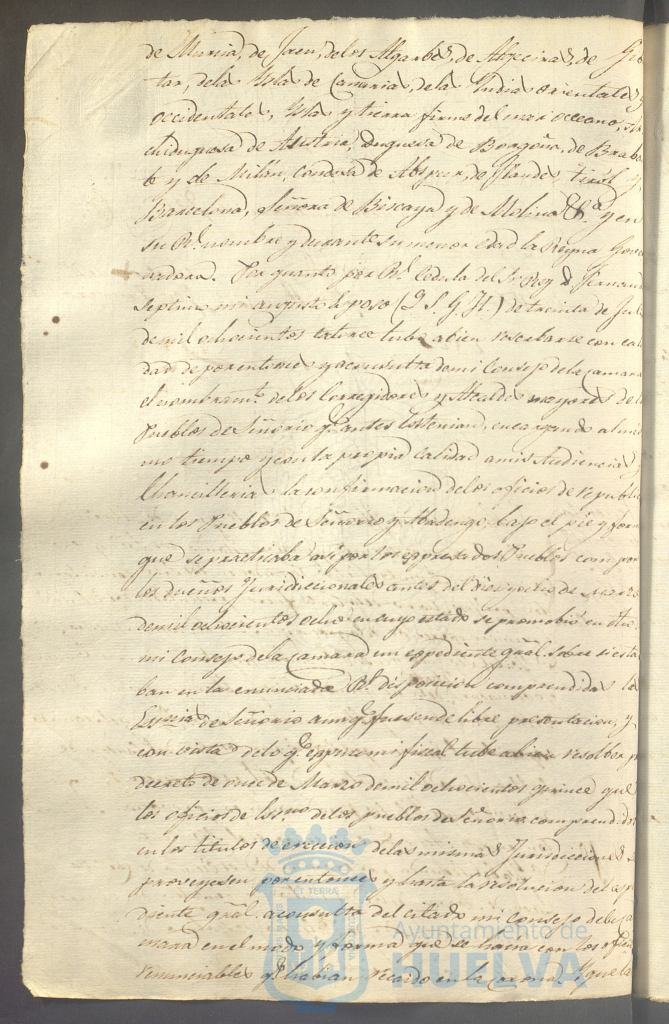 de Murcia, de Jaen, de los Algarbes, de Algeciras, de Gibral
tar, de las Islas de Canaria, de las Indias orientales y
occidentales, Islas y tierra firme del mar occeano, Ar
chiduquesa de Austria, Duquesa de Borgoña, de Braban
te y de Milan, Condesa de Abspur, de Flandes, tirol y
Barcelona, Señora de Biscaya y de Molina &ª y en
su Rl. nombre y durante su menor edad la Reyna Gover
nadora. Por quanto por Rl. Cedula del Sr. Rey D. Fernando
Septimo mi augusto Esposo (Q. S. G. H.) de treinta de Jul
de mil ochocientos catorce tubo a bien reserbarse con cali
dad de por entonces y a consulta de mi Consejo de la Camara
el nombramto. de los Corregidores y Alcaldes mayores de los
Pueblos de Señorio q. antes los tenian, encargando al mis
mo tiempo y con la propia calidad a mis Audiencias y
Chancillerias la confirmacion de los oficios de republi
en los Pueblos de Señorio y Abadengo, bajo el pie y forma
que se practicaba asi por los expresados Pueblos como por
los dueños Jurisdiccionales antes del diez y ocho de Marzo
de mil ochocientos ocho en cuyo estado se promobió en dho
mi Consejo de la Camara un expediente gral. sobre si esta
ban en la enunciada Rl. disposicion comprendidas las
de Señorio aunq. fuesen de libre presentacion, y
con vista de lo q. expuso mi fiscal tube a bien resolber p
decreto de once de Marzo de mil ochocientos quince que
los oficios de de los pueblos de Señorio comprendidos
en los titulos de ereccion de las mismas Jurisdicciones se
proveyesen por entonces y hasta la resolucion del espe
diente gral. a consulta del citado mi Consejo de la Ca
mara en el modo y forma que se hacia con los oficios
renunciables q. habian recaido en la corona. Y que la
Ayuntamiento de
HUELVA